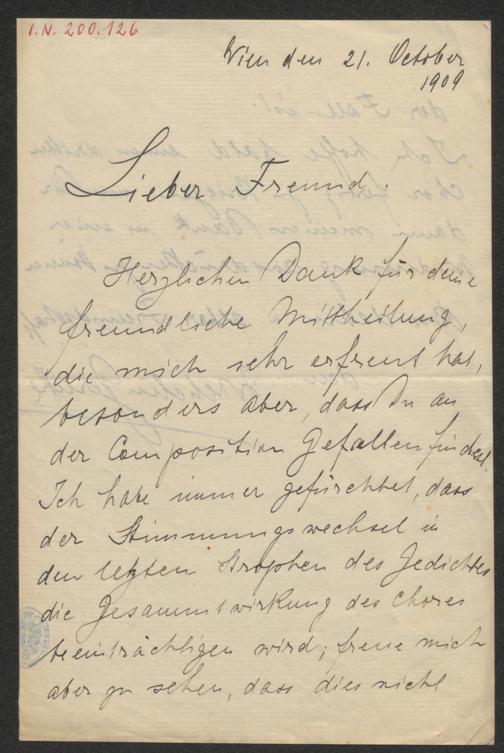 I.N. 200.126
Wien den 21. October
1909
Lieber Freund.
Herzlichen Dank für deine
freundliche Mittheilung,
die mich sehr erfreut hat,
besonders aber, dass Du an
der Composition Gefallen findest.
Ich habe immer gefürchtet, dass
der Stimmungswechsel in
den letzten Strophen des Gedichtes
die Gesammtwirkung des Chores
beeinträchtigen wird; freue mich
aber zu sehen, dass dies nicht